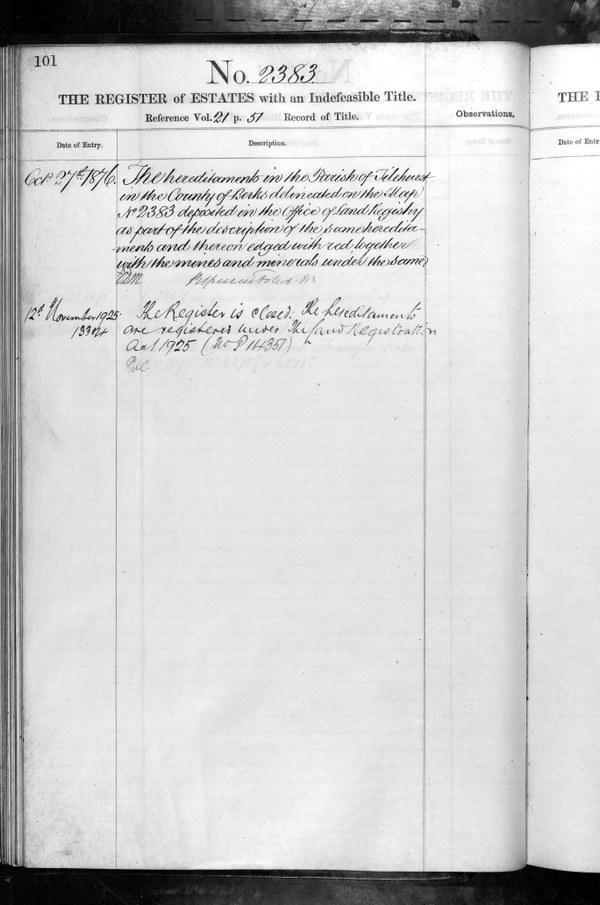 101
No. 2383
THE REGISTER of ESTATES with an Indefeasible Title.
Reference Vol. 21 p. 51 Record of Title.
Observations.
Date of Entry.
Description.
Oct 27th 1876.
The hereditaments in the Parish of Tilehurst
in the County of Berks delineated on the Map
No 2383 deposited in the Office of Land Registry
as part of the description of the same heredita-
-ments and thereon edged with red together
with the mines and minerals under the same
12th November 1925
The Register is closed. The hereditaments
are registered under The Land Registration
Act 1925 (No P 14351)
THE
Date of Entr